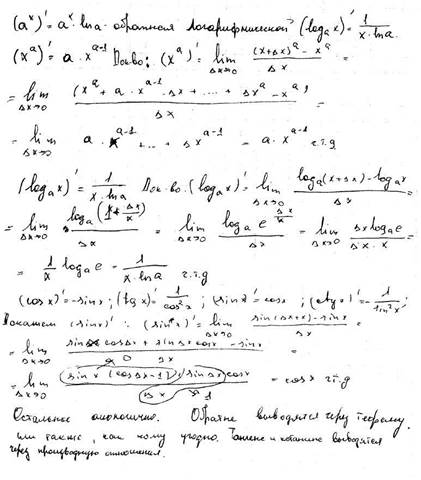 (aˣ)' = aˣ · ln a - обратная логарифмической (logₐx)' = 1/(x·ln a)
(xᵃ)' = a · xᵃ⁻¹ Док-во: (xᵃ)' = lim Δx→0 ((x+Δx)ᵃ - xᵃ)/Δx =
= lim Δx→0 (xᵃ + a·xᵃ⁻¹·Δx + ... + Δxᵃ - xᵃ)/Δx =
= lim Δx→0 a·xᵃ⁻¹ + ... + Δxᵃ⁻¹ = a·xᵃ⁻¹ ч.т.д
(logₐx)' = 1/(x·ln a) Док-во. (logₐx)' = lim Δx→0 (logₐ(x+Δx) - logₐx)/Δx =
= lim Δx→0 logₐ(1+Δx/x)/Δx = lim Δx→0 logₐ e^(Δx/x)/Δx = lim Δx→0 Δx logₐe/(Δx·x) =
= 1/x logₐe = 1/(x·ln a) ч.т.д
(cos x)' = -sin x; (tg x)' = 1/cos²x; (sin x)' = cos x; (ctg x)' = -1/sin²x;
Докажем (sin x)': (sin x)' = lim Δx→0 (sin(Δx+x) - sin x)/Δx =
= lim Δx→0 (sin x cos Δx + sin Δx cos x - sin x)/Δx =
= lim Δx→0 (sin x (cos Δx - 1) + sin Δx cos x)/Δx = cos x ч.т.д
0 1
Остальное аналогично. Обратные выводятся через теорему,
или также, как кому угодно. Тангенс и котангенс выводятся
через производную отношения.